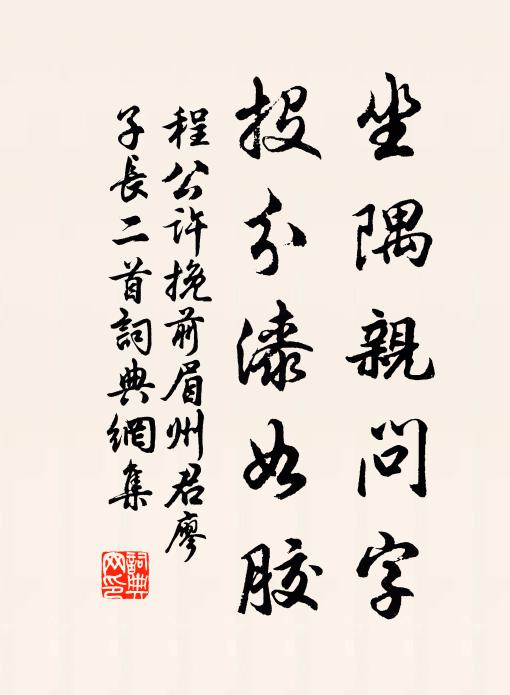 坐隅親問字
投分漆如膠
程公許挽前眉州君廖
子長二首詞典網集
詞典
网印